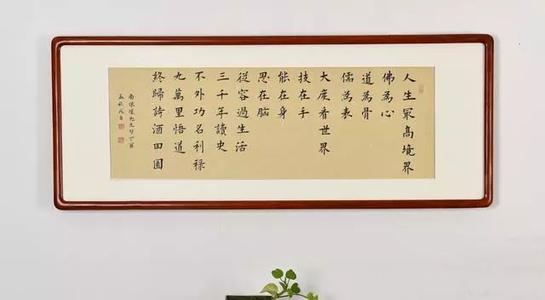 人生最高境界
佛為心
道為骨
儒為表
大度看世界
技在手
能在身
思在腦
從容過生活
三千年讀史
不外功名利祿
九萬里悟道
終歸詩酒田園
南懷瑾先生句丁酉